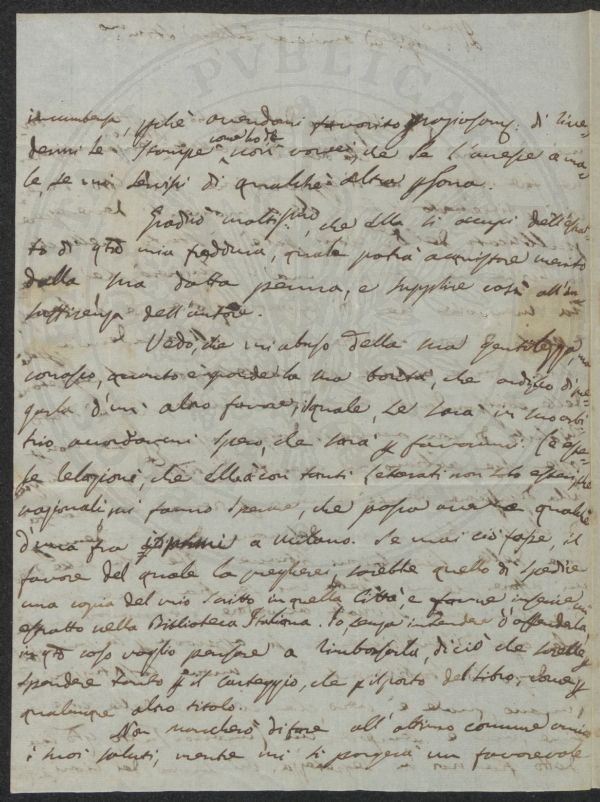 incumbenza, avendomi favorito graziosam. di
le stampe come ho detto non vorrei, che se l'avesse a ma-
le, se mi servissi di qualche altra psona.
Gradirò moltissimo, che Ella si occupi dell'estrat-
to di qto mia freddura, quale potrà acquistare merito
dalla sua dotta penna, e supplire così all'in-
sufficenza dell'autore.
Vedo, che mi abuso della sua gentilezza, ma
conosco, quanto è grande la sua bontà, che ardisco di pre-
garla d'un altro favore, il quale, se sarà in suo arbi-
trio accordarmi spero, che sarà p favorirmi. Le
relazioni, che Ella à con tanti Letterati non solo esteri, che
nazionali mi fanno sperare, che possa averne qualche-
d'una fra a Milano. Se mai ciò fosse, il
favore del quale la pregherei, sarebbe quello di spedire
una copia del mio scritto in quella Città, e farne inserire un
estratto nella Biblioteca Italiana. Io, senza intendere d'offenderla,
in qto caso voglio pensare a rimborsarla, di ciò che
spendere tanto p il carteggio, che p il porto del libro,
qualunque altro titolo.
Non mancherò di fare all'ottimo comune amico
i suoi saluti, mentre mi si porgerà un favorevole